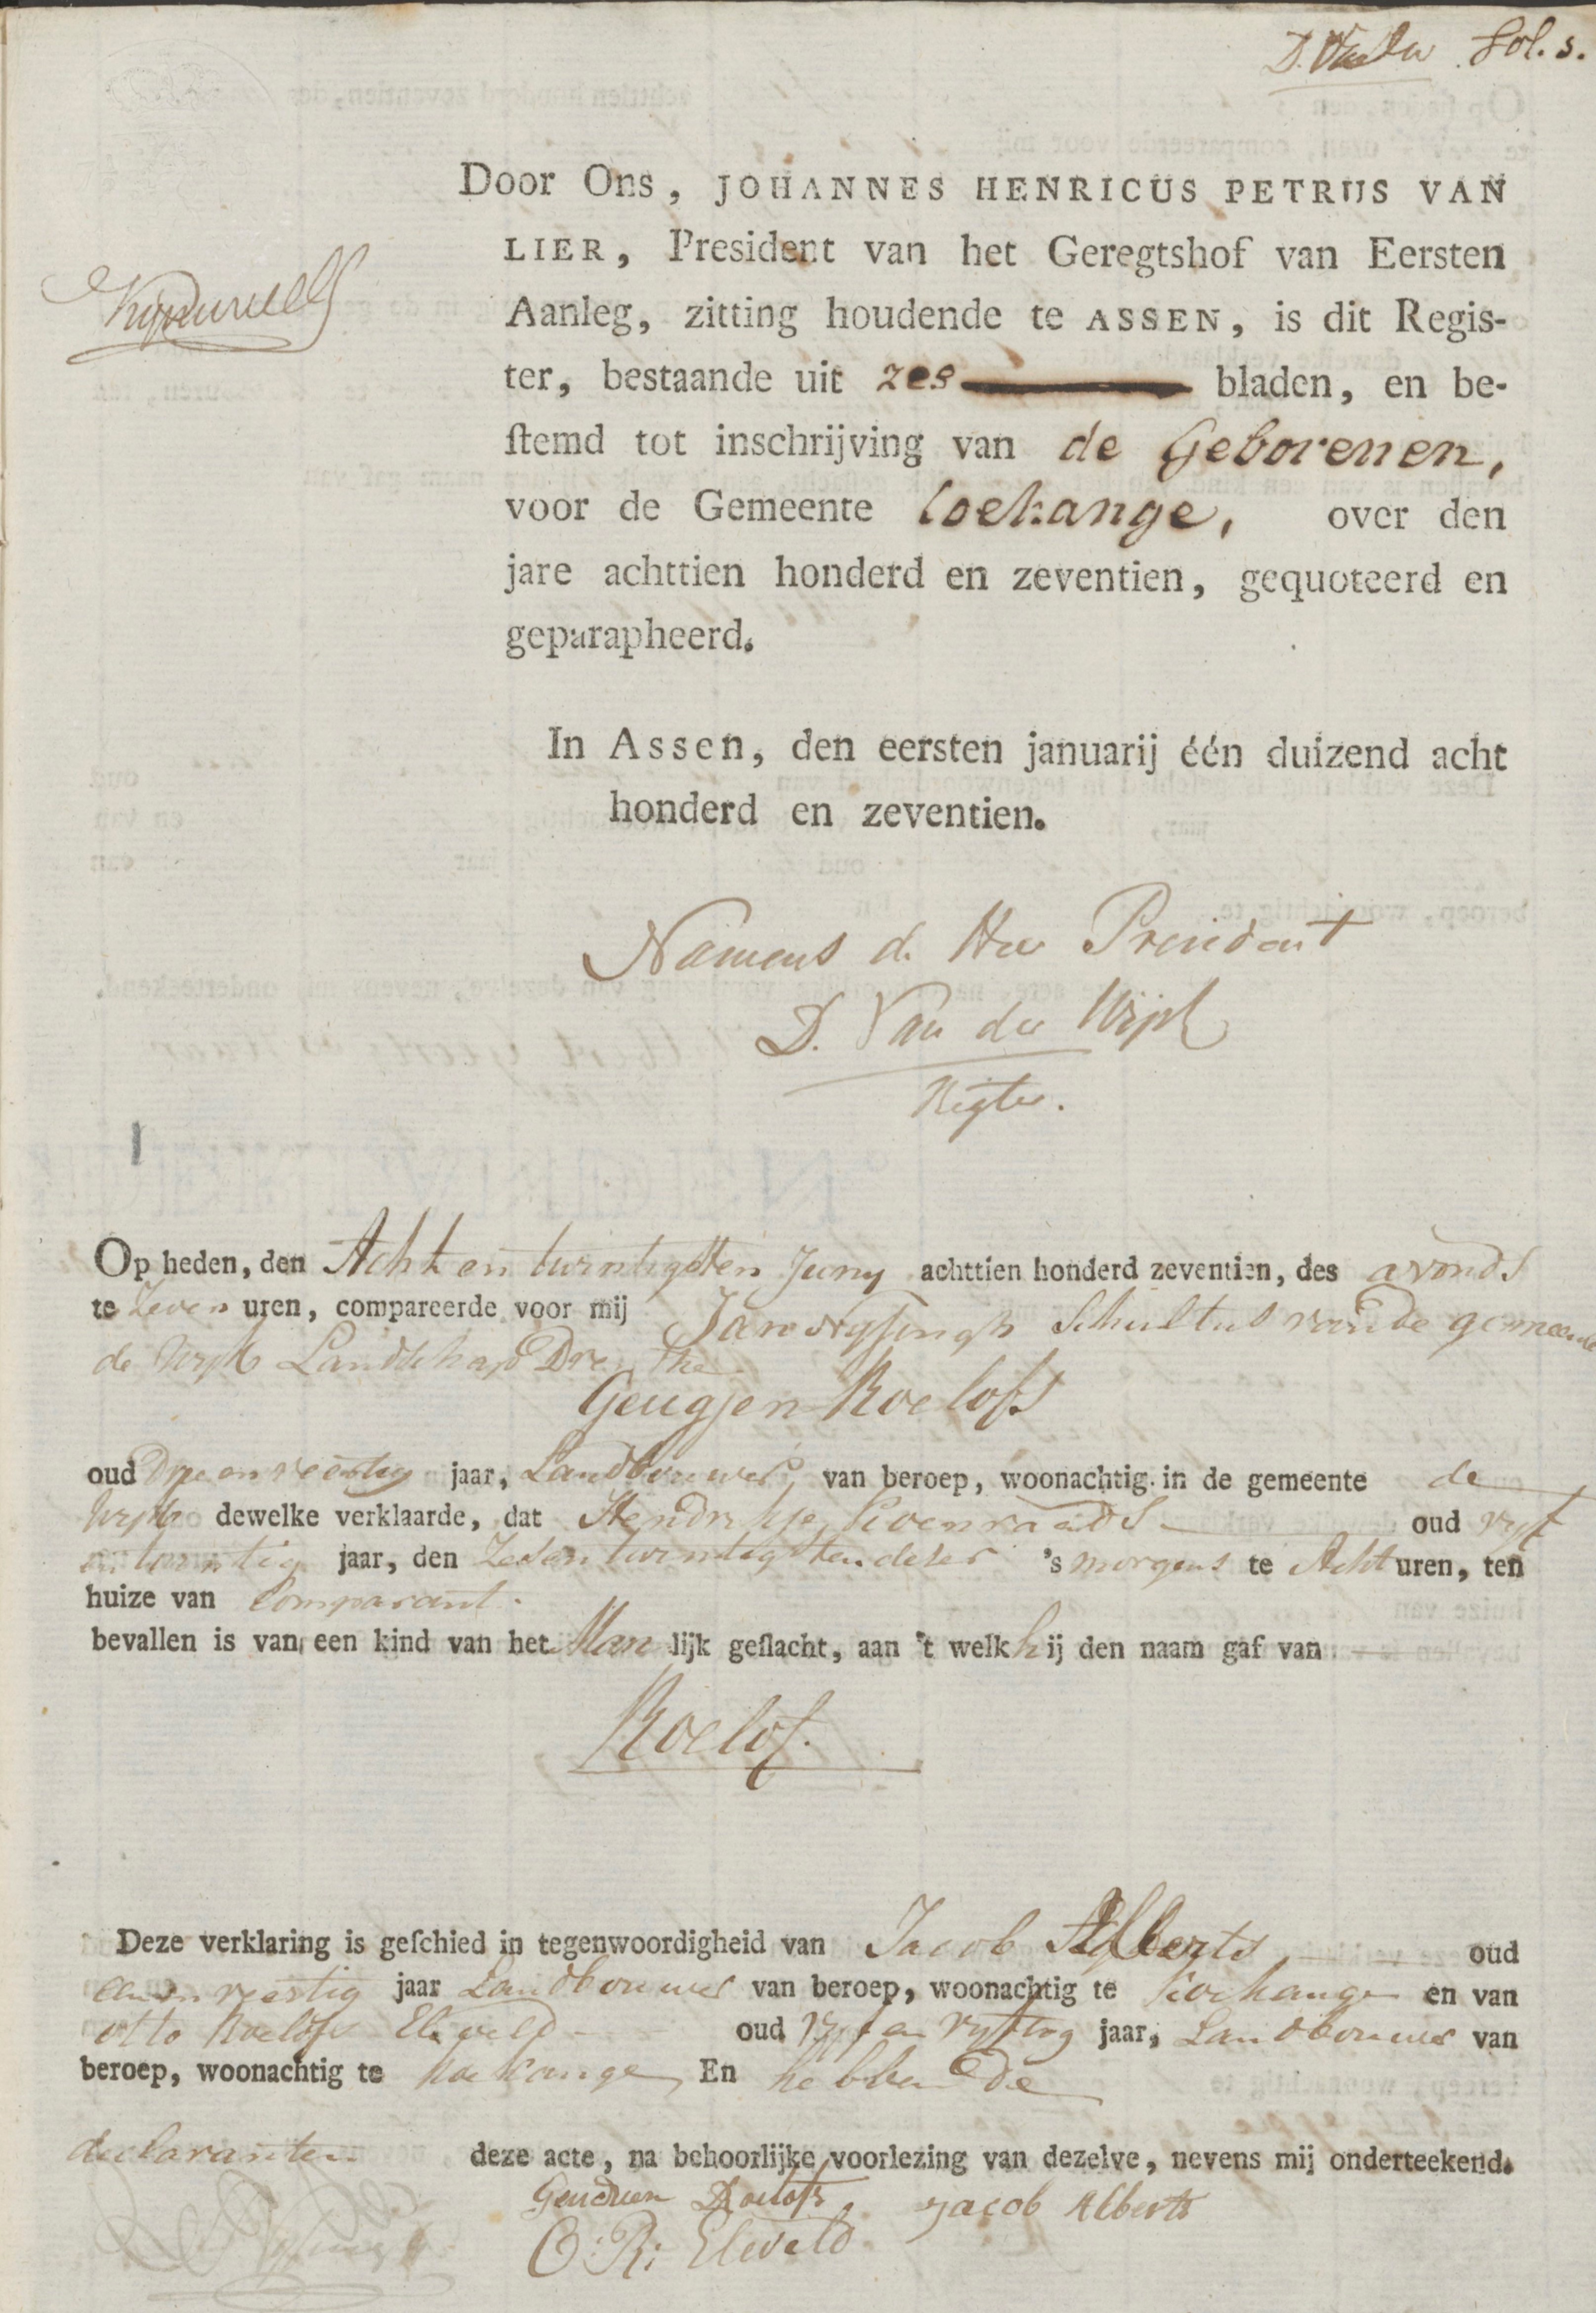 fol. s.
Door Ons, JOHANNES HENRICUS PETRUS VAN
LIER, President van het Geregtshof van Eersten
Aanleg, zitting houdende te ASSEN, is dit Regis-
ter, bestaande uit zes bladen, en be-
ſtemd tot inschrijving van de Geborenen,
voor de Gemeente Coekange, over den
jare achttien honderd en zeventien, gequoteerd en
geparapheerd.
In Assen, den eersten januarij één duizend acht
honderd en zeventien.
Namens de Heer President
D. Van der Wijck
Regter.
1
Op heden, den Acht en twintigsten Juny achttien honderd zeventien, des avonds
te Zeven uren, compareerde voor mij Jan Schultus van de gemeente
de Wijk Landschap Drenthe
Geugjen Roelofs
oud Drie en veertig jaar, Landbouwer, van beroep, woonachtig in de gemeente de
Wijk dewelke verklaarde, dat Hendrikje Koenraads oud vyf
en twintig jaar, den Zes en twintigsten deser 's morgens te Acht uren, ten
huize van Comparant.
bevallen is van een kind van het Man lijk geſlacht, aan 't welk hij den naam gaf van
Roelof.
Deze verklaring is geſchied in tegenwoordigheid van Jacob Alberts oud
een en veertig jaar Landbouwer van beroep, woonachtig te Koekange en van
otto Roelofs Eleveld oud vyf en vyftog jaar, Landbouwer van
beroep, woonachtig te Koekange En hebben de
declaranten deze acte, na behoorlijke voorlezing van dezelve, nevens mij onderteekend.
Roelofs Jacob Alberts
O: R: Eleveld